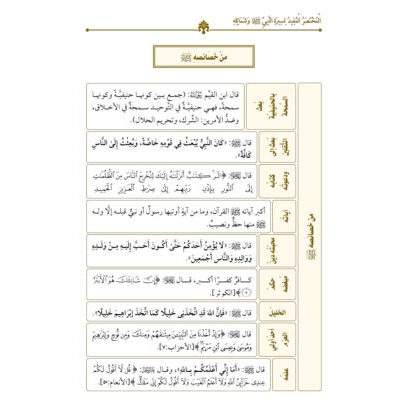 المختصر المفيد لسيرة النبي ﷺ وشمائله
من خصائصه ﷺ
من خصائصه ﷺ
بعث بالحنيفية السمحة
قال ابن القيم: (جمع بين كونها حنيفية وكونها
سمحة، فهي حنيفية في التوحيد سمحة في الأخلاق،
وضد الأمرين: الشرك، وتحريم الحلال).
بعث إلى الثقلين
قال ﷺ: «كَانَ النَّبِيُّ يُبْعَثُ فِي قَوْمِهِ خَاصَّةً، وَبُعِثْتُ إِلَى النَّاسِ
كَافَّةً».
ودعوته كتابه
قال ﷻ: ﴿الٓر كِتَٰبٌ أَنزَلْنَٰهُ إِلَيْكَ لِتُخْرِجَ النَّاسَ مِنَ الظُّلُمَٰتِ
إِلَى النُّورِ بِإِذْنِ رَبِّهِمْ إِلَىٰ صِرَٰطِ الْعَزِيزِ الْحَمِيدِ
آياته
أكبر آياته ﷺ القرآن، وما من آية أوتيها رسول أو نبي قبله إلا وله
ﷺ منها حظ ونصيب.
محبته دين
قال ﷺ: «لَا يُؤْمِنُ أَحَدُكُمْ حَتَّى أَكُونَ أَحَبَّ إِلَيْهِ مِنْ وَلَدِهِ
وَوَالِدِهِ وَالنَّاسِ أَجْمَعِينَ».
مبغضه
كافر كفرًا أكبر، قال ﷻ: ﴿إِنَّ شَانِئَكَ هُوَ الْأَبْتَرُ
﴾ [الكوثر].
الخليل
قال ﷺ: «فَإِنَّ اللهَ قَدِ اتَّخَذَنِي خَلِيلًا كَمَا اتَّخَذَ إِبْرَاهِيمَ خَلِيلًا».
أحد أولي العزم
قال ﷻ: ﴿وَإِذْ أَخَذْنَا مِنَ النَّبِيِّـۧنَ مِيثَٰقَهُمْ وَمِنكَ وَمِن نُّوحٍ وَإِبْرَٰهِيمَ
وَمُوسَىٰ وَعِيسَى ابْنِ مَرْيَمَ﴾ [الأحزاب: ٧].
علمه
«أَمَا إِنِّي أَعْلَمُكُمْ بِاللهِ»، وقال ﷻ: ﴿قُل لَّآ أَقُولُ لَكُمْ
عِندِي خَزَآئِنُ اللَّهِ وَلَآ أَعْلَمُ الْغَيْبَ وَلَآ أَقُولُ لَكُمْ إِنِّي مَلَكٌ﴾ [الأنعام: ٥٠].